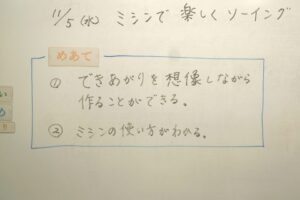 11/5(水) ミシンで楽しくソーイング
めあて
① できあがりを想像しながら
作ることができる。
② ミシンの使い方がわかる。
い
り